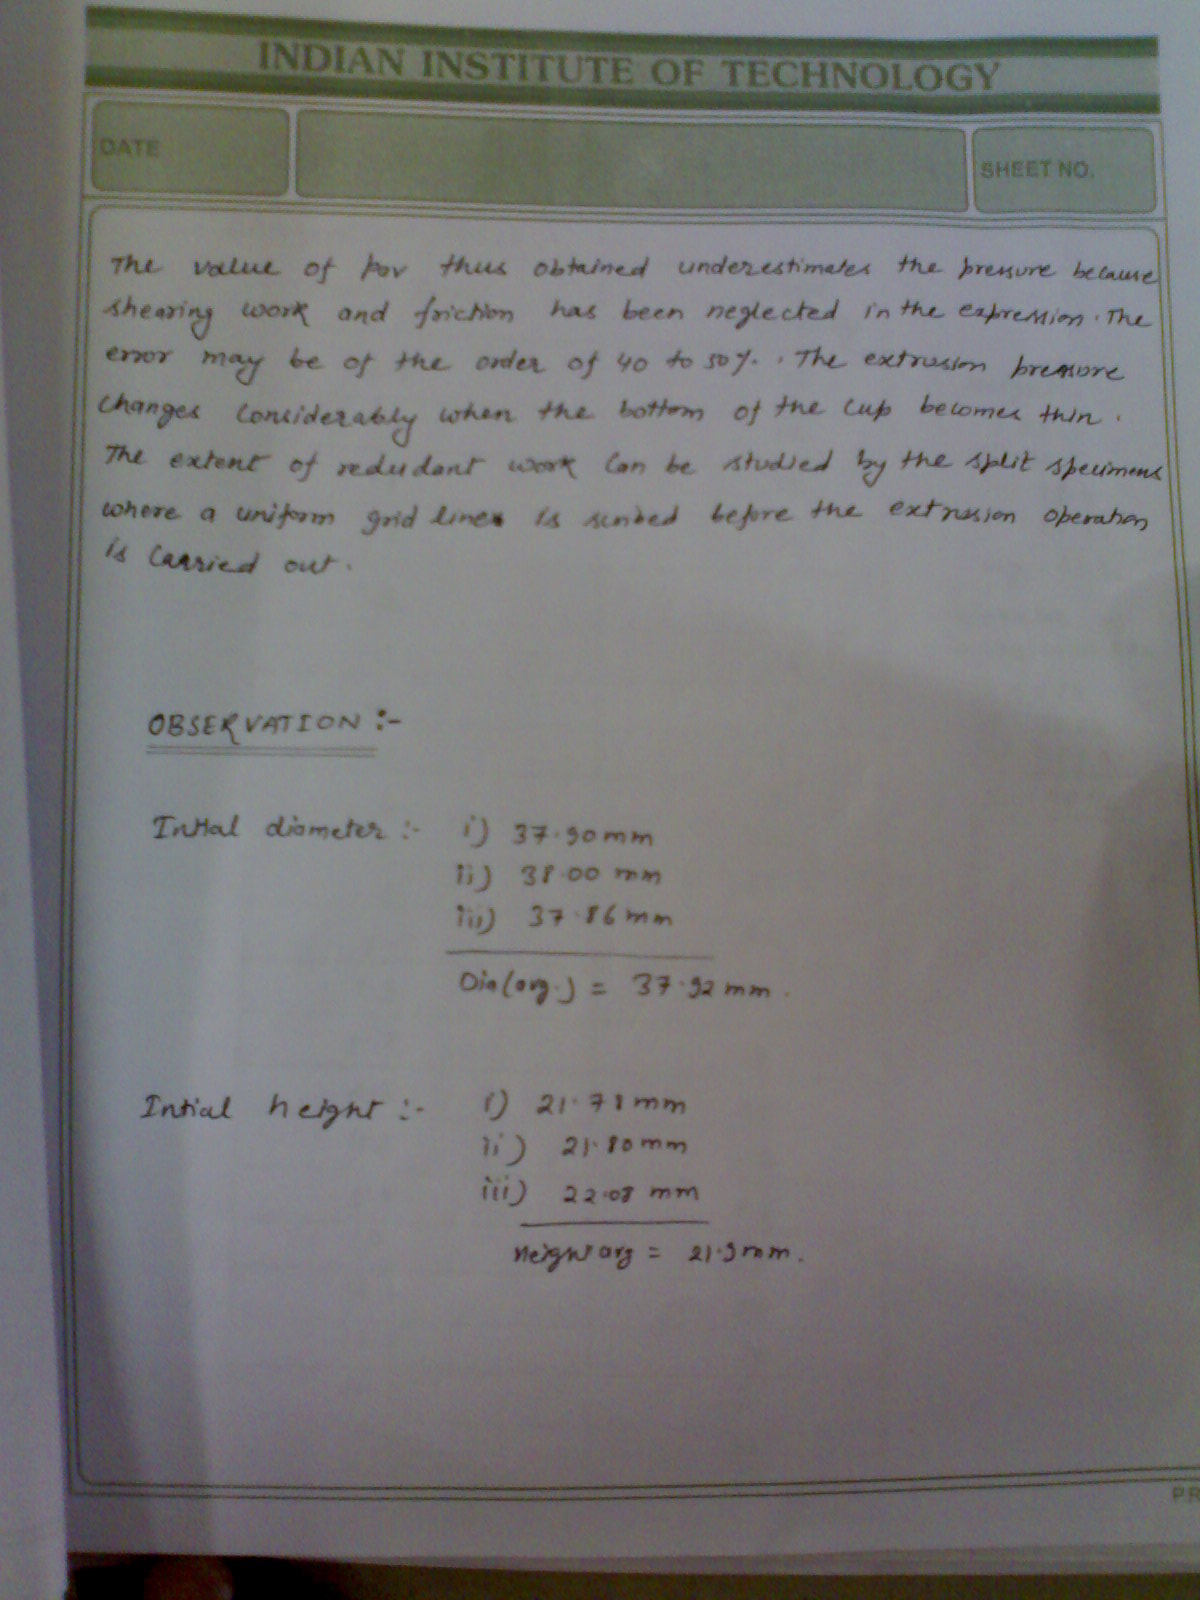 INDIAN INSTITUTE OF TECHNOLOGY
DATE
SHEET NO.
The value of pav thus obtained underestimates the pressure because
shearing work and friction has been neglected in the expression. The
error may be of the order of 40 to 50%. . The extrusion pressure
changes considerably when the bottom of the cup becomes thin.
The extent of redudant work can be studied by the split specimens
where a uniform grid lines is scribed before the extrusion operation
is carried out.
OBSERVATION :-
Intial diameter :- i) 37.90 mm
ii) 38.00 mm
iii) 37.86 mm
Dia(avg.) = 37.92 mm.
Intial height :- i) 21.78 mm
ii) 21.80 mm
iii) 22.08 mm
Height avg = 21.9 mm.